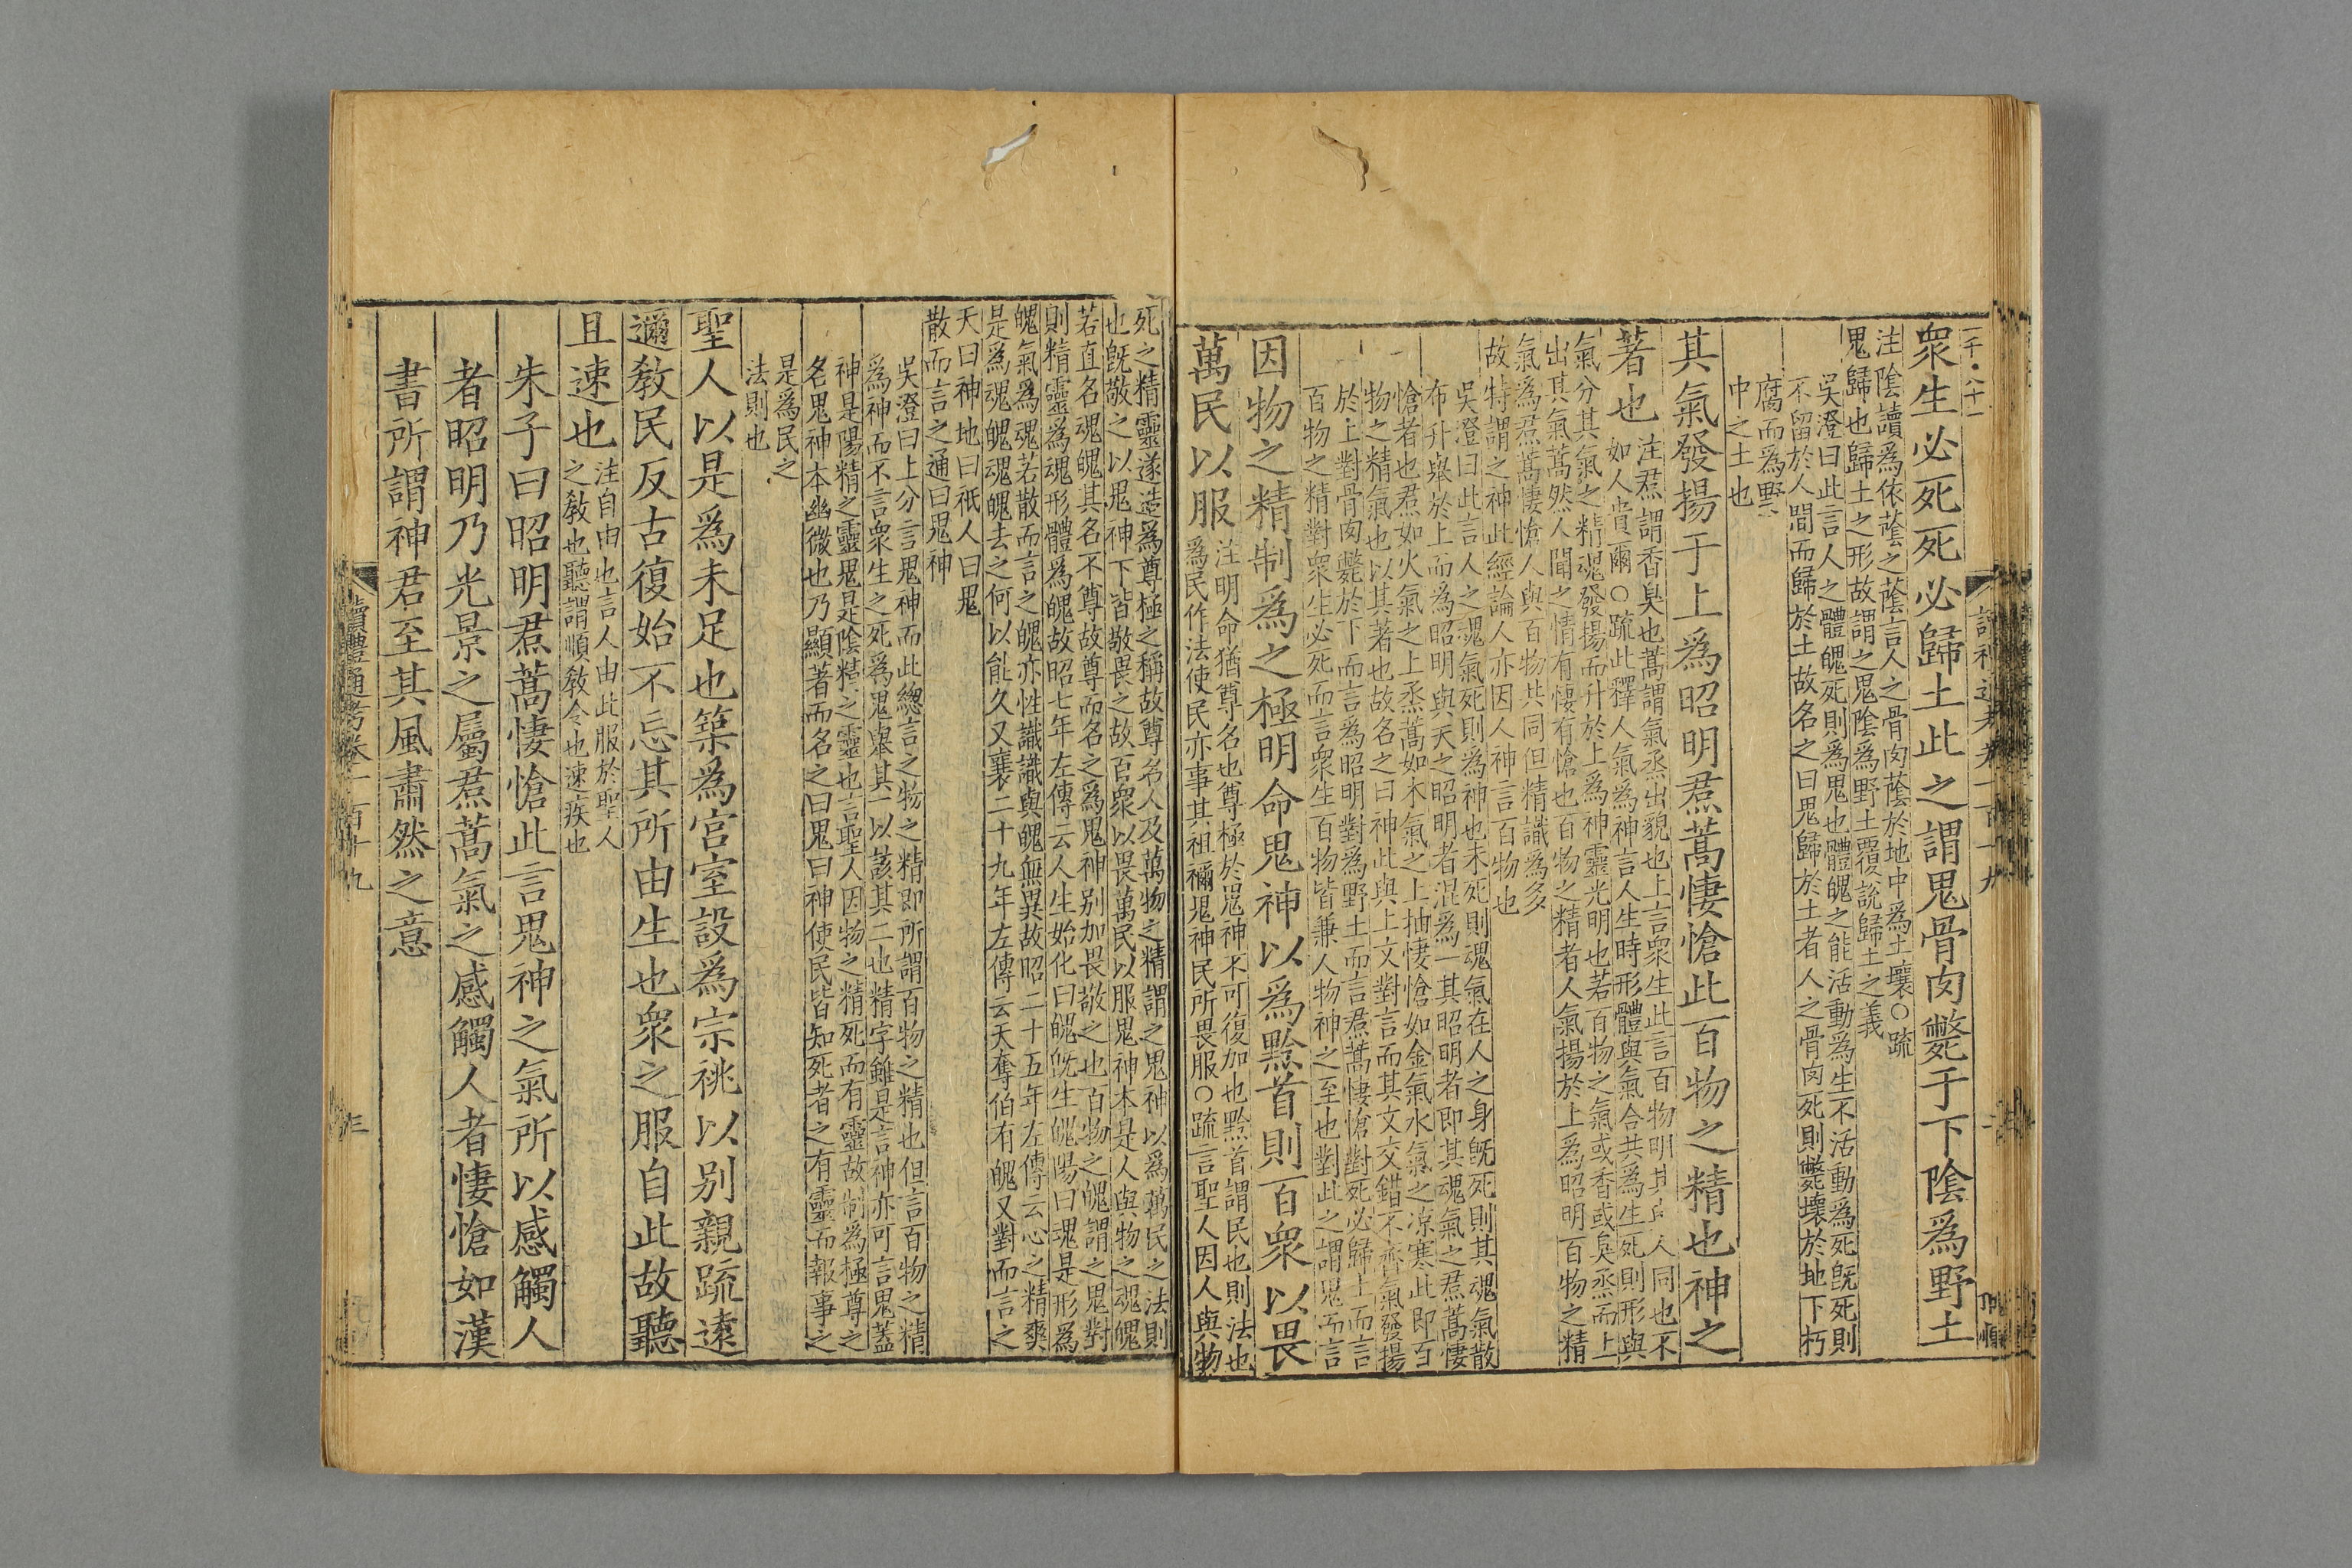 衆生必死死必歸土此之謂鬼骨肉斃于下陰爲野土
注陰讀爲依蔭之蔭言人之骨肉蔭於地中爲土壤○疏
鬼歸也歸土之形故謂之鬼陰爲野土覆說歸土之義
吳澄曰此言人之體魄死則爲鬼也體魄之能活動爲生不活動爲死旣死則
不留於人間而歸於土故名之曰鬼歸於土者人之骨肉死則斃壞於地下朽
腐而爲野
中之土也
其氣發揚于上爲昭明焄蒿悽愴此百物之精也神之
著也
注焄謂香臭也蒿謂氣烝出貌也上言衆生此言百物明其與人同也不
如人貴爾○疏此釋人氣爲神言人生時形體與氣合共爲生死則形與
氣分其氣之精魂發揚而升於上爲神靈光明也若百物之氣或香或臭烝而上
出其氣蒿然人聞之情有悽有愴也百物之精者人氣揚於上爲昭明百物之精
氣爲焄蒿悽愴人與百物共同但精識爲多
故特謂之神此經論人亦因人神言百物也
吳澄曰此言人之魂氣死則爲神也未死則魂氣在人之身旣死則其魂氣散
布升舉於上而爲昭明與天之昭明者混爲一其昭明者即其魂氣之焄蒿悽
愴者也焄如火氣之上烝蒿如木氣之上抽悽愴如金氣水氣之凉寒此即百
物之精氣也以其著也故名之曰神此與上文對言而其文交錯不齊氣發揚
於上對骨肉斃於下而言爲昭明對爲野土而言焄蒿悽愴對死必歸土而言
百物之精對衆生必死而言衆生百物皆兼人物神之至也對此之謂鬼而言
因物之精制爲之極明命鬼神以爲黔首則百衆以畏
萬民以服
注明命猶尊名也尊極於鬼神不可復加也黔首謂民也則法也
爲民作法使民亦事其祖禰鬼神民所畏服○疏言聖人因人與物
死之精靈遂造爲尊極之稱故尊名人及萬物之精謂之鬼神以爲萬民之法則
也旣敬之以鬼神下皆敬畏之故百衆以畏萬民以服鬼神本是人與物之魂魄
若直名魂魄其名不尊故尊而名之爲鬼神别加畏敬之也百物之魄謂之鬼對
則精靈爲魂形體爲魄故昭七年左傳云人生始化曰魄旣生魄陽曰魂是形爲
魄氣爲魂若散而言之魄亦性識識與魄無異故昭二十五年左傳云心之精爽
是爲魂魄魂魄去之何以能久又襄二十九年左傳云天奪伯有魄又對而言之
天曰神地曰祇人曰鬼
散而言之通曰鬼神
吳澄曰上分言鬼神而此總言之物之精即所謂百物之精也但言百物之精
爲神而不言衆生之死爲鬼舉其一以該其二也精字雖是言神亦可言鬼蓋
神是陽精之靈鬼是陰精之靈也言聖人因物之精死而有靈故制爲極尊之
名鬼神本幽微也乃顯著而名之曰鬼曰神使民皆知死者之有靈而報事之
是爲民之
法則也
聖人以是爲未足也築爲宫室設爲宗祧以别親疏遠
邇敎民反古復始不忘其所由生也衆之服自此故聽
且速也
注自由也言人由此服於聖人
之敎也聽謂順敎令也速疾也
朱子曰昭明焄蒿悽愴此言鬼神之氣所以感觸人
者昭明乃光景之屬焄蒿氣之感觸人者悽愴如漢
書所謂神君至其風肅然之意
讀禮通考卷一百十九
三